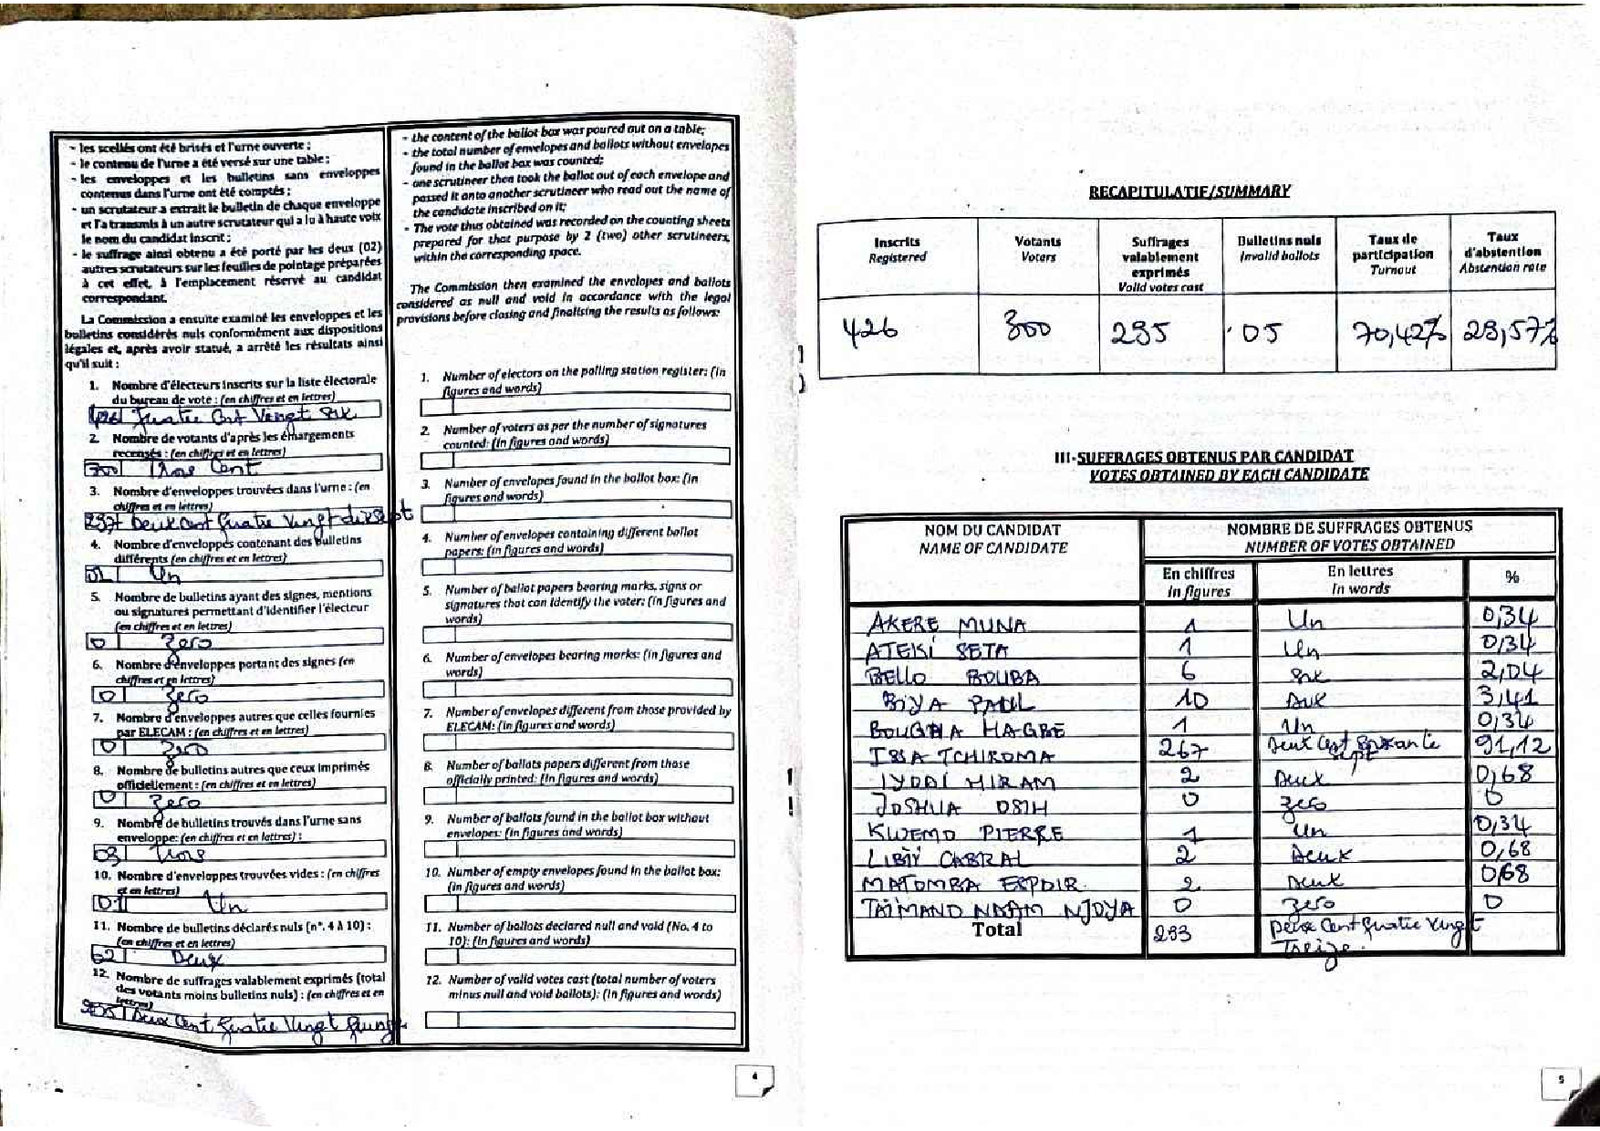 - les scellés ont été brisés et l'urne ouverte ;
- le contenu de l'urne a été versé sur une table ;
- les enveloppes et les bulletins sans enveloppes
contenus dans l'urne ont été comptés ;
- un scrutateur a extrait le bulletin de chaque enveloppe
et l'a transmis à un autre scrutateur qui a lu à haute voix
le nom du candidat inscrit ;
- le suffrage ainsi obtenu a été porté par les deux (02)
autres scrutateurs sur les feuilles de pointage préparées
à cet effet, à l'emplacement réservé au candidat
correspondant.
La Commission a ensuite examiné les enveloppes et les
bulletins considérés nuls conformément aux dispositions
légales et, après avoir statué, a arrêté les résultats ainsi
qu'il suit :
1. Nombre d'électeurs inscrits sur la liste électorale
du bureau de vote : (en chiffres et en lettres)
426 Quatre Cent Vingt Six
2. Nombre de votants d'après les émargements
recensés : (en chiffres et en lettres)
300 Trois Cent
3. Nombre d'enveloppes trouvées dans l'urne : (en
chiffres et en lettres)
297 Deux Cent Quatre Vingt dix sept
4. Nombre d'enveloppes contenant des bulletins
différents (en chiffres et en lettres)
01 Un
5. Nombre de bulletins ayant des signes, mentions
ou signatures permettant d'identifier l'électeur
(en chiffres et en lettres)
0 Zero
6. Nombre d'enveloppes portant des signes (en
chiffres et en lettres)
0 Zero
7. Nombre d'enveloppes autres que celles fournies
par ELECAM : (en chiffres et en lettres)
0 Zero
8. Nombre de bulletins autres que ceux imprimés
officiellement : (en chiffres et en lettres)
0 Zero
9. Nombre de bulletins trouvés dans l'urne sans
enveloppe: (en chiffres et en lettres) :
03 Trois
10. Nombre d'enveloppes trouvées vides : (en chiffres
et en lettres)
01 Un
11. Nombre de bulletins déclarés nuls (n°. 4 à 10) :
(en chiffres et en lettres)
02 Deux
12. Nombre de suffrages valablement exprimés (total
des votants moins bulletins nuls) : (en chiffres et en
lettres)
Deux Cent Quatre Vingt
- the content of the ballot box was poured out on a table;
- the total number of envelopes and ballots without envelopes
found in the ballot box was counted;
- one scrutineer then took the ballot out of each envelope and
passed it onto another scrutineer who read out the name of
the candidate inscribed on it;
- The vote thus obtained was recorded on the counting sheets
prepared for that purpose by 2 (two) other scrutineers,
within the corresponding space.
The Commission then examined the envelopes and ballots
considered as null and void in accordance with the legal
provisions before closing and finalising the results as follows:
1. Number of electors on the polling station register: (in
figures and words)
2. Number of voters as per the number of signatures
counted: (in figures and words)
3. Number of envelopes found in the ballot box: (in
figures and words)
4. Number of envelopes containing different ballot
papers: (in figures and words)
5. Number of ballot papers bearing marks, signs or
signatures that can identify the voter: (in figures and
words)
6. Number of envelopes bearing marks: (in figures and
words)
7. Number of envelopes different from those provided by
ELECAM: (in figures and words)
8. Number of ballots papers different from those
officially printed: (in figures and words)
9. Number of ballots found in the ballot box without
envelopes: (in figures and words)
10. Number of empty envelopes found in the ballot box:
(in figures and words)
11. Number of ballots declared null and void (No. 4 to
10): (in figures and words)
12. Number of valid votes cast (total number of voters
minus null and void ballots): (in figures and words)
4
RECAPITULATIF/SUMMARY
Inscrits Registered Votants Voters Suffrages valablement exprimés Valid votes cast Bulletins nuls Invalid ballots Taux de participation Turnout Taux d'abstention Abstention rate
426 300 295 05 70,42% 29,57%
III-SUFFRAGES OBTENUS PAR CANDIDAT
VOTES OBTAINED BY EACH CANDIDATE
NOM DU CANDIDAT NOMBRE DE SUFFRAGES OBTENUS
NAME OF CANDIDATE NUMBER OF VOTES OBTAINED
En chiffres En lettres %
in figures in words
AKERE MUNA 1 Un 0,34
ATEKI SETA 1 Un 0,34
BELLO BOUBA 6 Six 2,04
BIYA PAUL 10 Dix 3,41
BOUGHA HAGBE 1 Un 0,34
ISSA TCHIROMA 267 Deux Cent Soixante sept 91,12
IYODI HIRAM 2 Deux 0,68
JOSHUA OSIH 0 Zero 0
KWEMO PIERRE 1 Un 0,34
LIBII CABRAL 2 Deux 0,68
MATOMBA ESPOIR 2 Deux 0,68
TAIMAND NDAM NJOYA 0 Zero 0
Total 293 Deux Cent Quatre Vingt Treize.
5